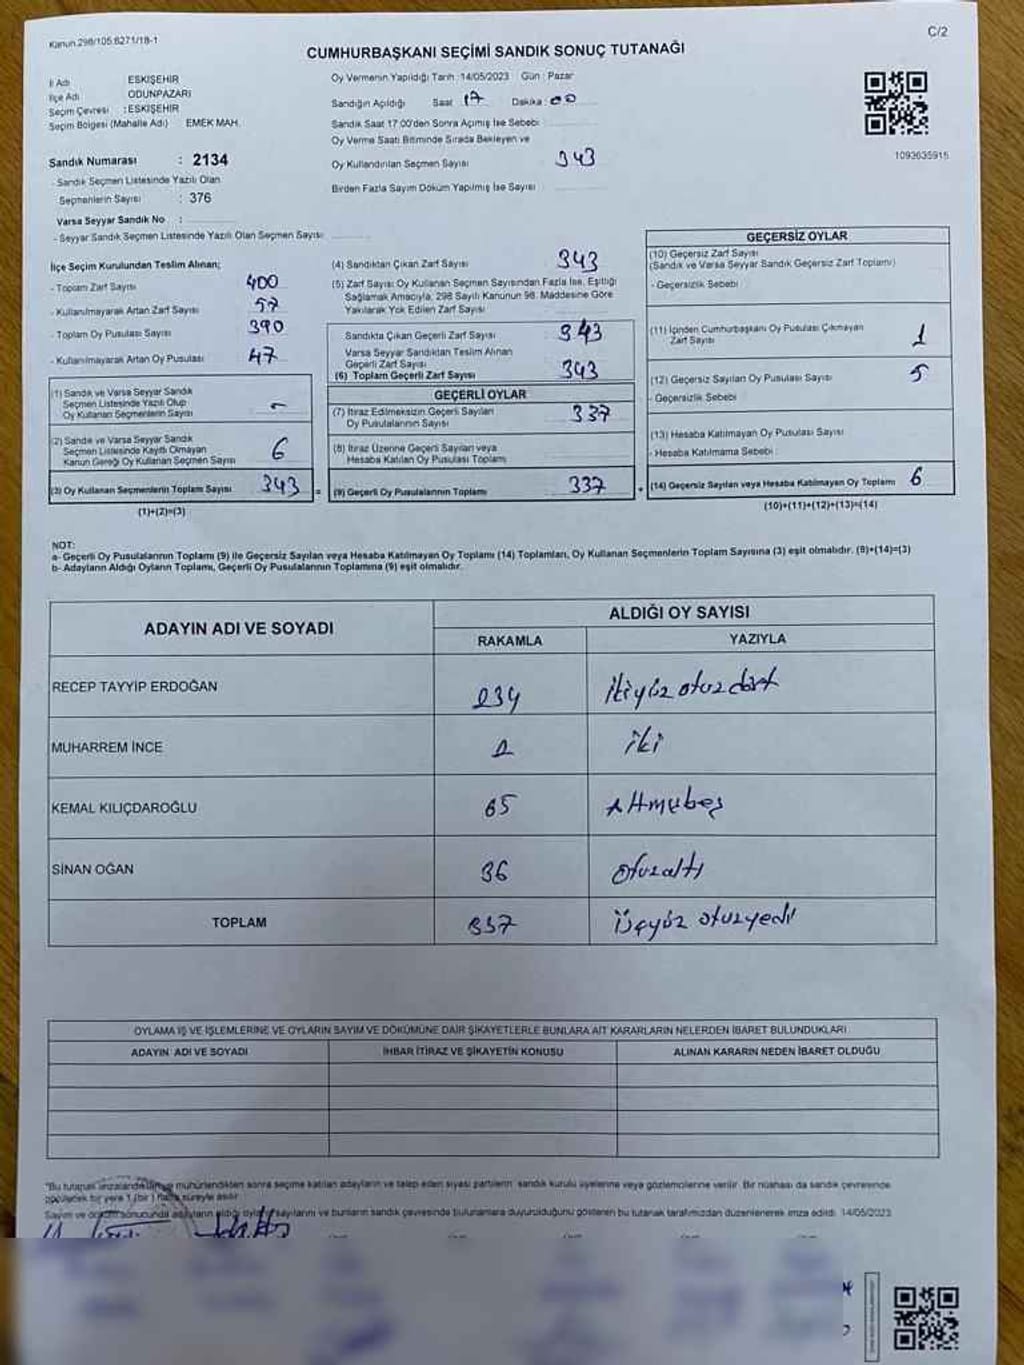 Kanun.298/105.6271/18-1
C/2
CUMHURBAŞKANI SEÇİMİ SANDIK SONUÇ TUTANAĞI
İl Adı ESKİŞEHİR
İlçe Adı ODUNPAZARI
Seçim Çevresi : ESKİŞEHİR
Seçim Bölgesi (Mahalle Adı) EMEK MAH.
Sandık Numarası : 2134
- Sandık Seçmen Listesinde Yazılı Olan
Seçmenlerin Sayısı : 376
Varsa Seyyar Sandık No :
- Seyyar Sandık Seçmen Listesinde Yazılı Olan Seçmen Sayısı
Oy Vermenin Yapıldığı Tarih : 14/05/2023 Gün : Pazar
Sandığın Açıldığı Saat 17 Dakika : 00
Sandık Saat 17:00'den Sonra Açılmış İse Sebebi
Oy Verme Saati Bitiminde Sırada Bekleyen ve
Oy Kullandırılan Seçmen Sayısı 343
Birden Fazla Sayım Döküm Yapılmış İse Sayısı
1093635915
İlçe Seçim Kurulundan Teslim Alınan;
- Toplam Zarf Sayısı 400
- Kullanılmayarak Artan Zarf Sayısı 57
- Toplam Oy Pusulası Sayısı 390
- Kullanılmayarak Artan Oy Pusulası 47
(1) Sandık ve Varsa Seyyar Sandık
Seçmen Listesinde Yazılı Olup
Oy Kullanan Seçmenlerin Sayısı -
(2) Sandık ve Varsa Seyyar Sandık
Seçmen Listesinde Kayıtlı Olmayan
Kanun Gereği Oy Kullanan Seçmen Sayısı 6
(3) Oy Kullanan Seçmenlerin Toplam Sayısı 343 =
(1)+(2)=(3)
(4) Sandıktan Çıkan Zarf Sayısı 343
(5) Zarf Sayısı Oy Kullanan Seçmen Sayısından Fazla İse, Eşitliği
Sağlamak Amacıyla, 298 Sayılı Kanunun 98. Maddesine Göre
Yakılarak Yok Edilen Zarf Sayısı
Sandıkta Çıkan Geçerli Zarf Sayısı 343
Varsa Seyyar Sandıktan Teslim Alınan
Geçerli Zarf Sayısı
(6) Toplam Geçerli Zarf Sayısı 343
GEÇERLİ OYLAR
(7) İtiraz Edilmeksizin Geçerli Sayılan
Oy Pusulalarının Sayısı 337
(8) İtiraz Üzerine Geçerli Sayılan veya
Hesaba Katılan Oy Pusulası Toplamı
(9) Geçerli Oy Pusulalarının Toplamı 337 +
GEÇERSİZ OYLAR
(10) Geçersiz Zarf Sayısı
(Sandık ve Varsa Seyyar Sandık Geçersiz Zarf Toplamı)
- Geçersizlik Sebebi
(11) İçinden Cumhurbaşkanı Oy Pusulası Çıkmayan
Zarf Sayısı 1
(12) Geçersiz Sayılan Oy Pusulası Sayısı 5
- Geçersizlik Sebebi
(13) Hesaba Katılmayan Oy Pusulası Sayısı
- Hesaba Katılmama Sebebi
(14) Geçersiz Sayılan veya Hesaba Katılmayan Oy Toplamı 6
(10)+(11)+(12)+(13)=(14)
NOT:
a- Geçerli Oy Pusulalarının Toplamı (9) ile Geçersiz Sayılan veya Hesaba Katılmayan Oy Toplamı (14) Toplamları, Oy Kullanan Seçmenlerin Toplam Sayısına (3) eşit olmalıdır. (9)+(14)=(3)
b- Adayların Aldığı Oyların Toplamı, Geçerli Oy Pusulalarının Toplamına (9) eşit olmalıdır.
ADAYIN ADI VE SOYADI ALDIĞI OY SAYISI
RAKAMLA YAZIYLA
RECEP TAYYİP ERDOĞAN 234 ikiyüz otuz dört
MUHARREM İNCE 2 iki
KEMAL KILIÇDAROĞLU 65 Altmışbeş
SİNAN OĞAN 36 otuzaltı
TOPLAM 337 Üçyüz otuzyedi
OYLAMA İŞ VE İŞLEMLERİNE VE OYLARIN SAYIM VE DÖKÜMÜNE DAİR ŞİKAYETLERLE BUNLARA AİT KARARLARIN NELERDEN İBARET BULUNDUKLARI
ADAYIN ADI VE SOYADI İHBAR İTİRAZ VE ŞİKAYETİN KONUSU ALINAN KARARIN NEDEN İBARET OLDUĞU
"Bu tutanak imzalandıktan ve mühürlendikten sonra seçime katılan adayların ve talep eden siyasi partilerin sandık kurulu üyelerine veya gözlemcilerine verilir. Bir nüshası da sandık çevresinde
görülecek bir yere 1 (bir) hafta süreyle asılır.
Sayım ve döküm sonucunda adayların aldığı oyların sayılarını ve bunların sandık çevresinde bulunanlara duyurulduğunu gösteren bu tutanak tarafımızdan düzenlenerek imza edildi. 14/05/2023